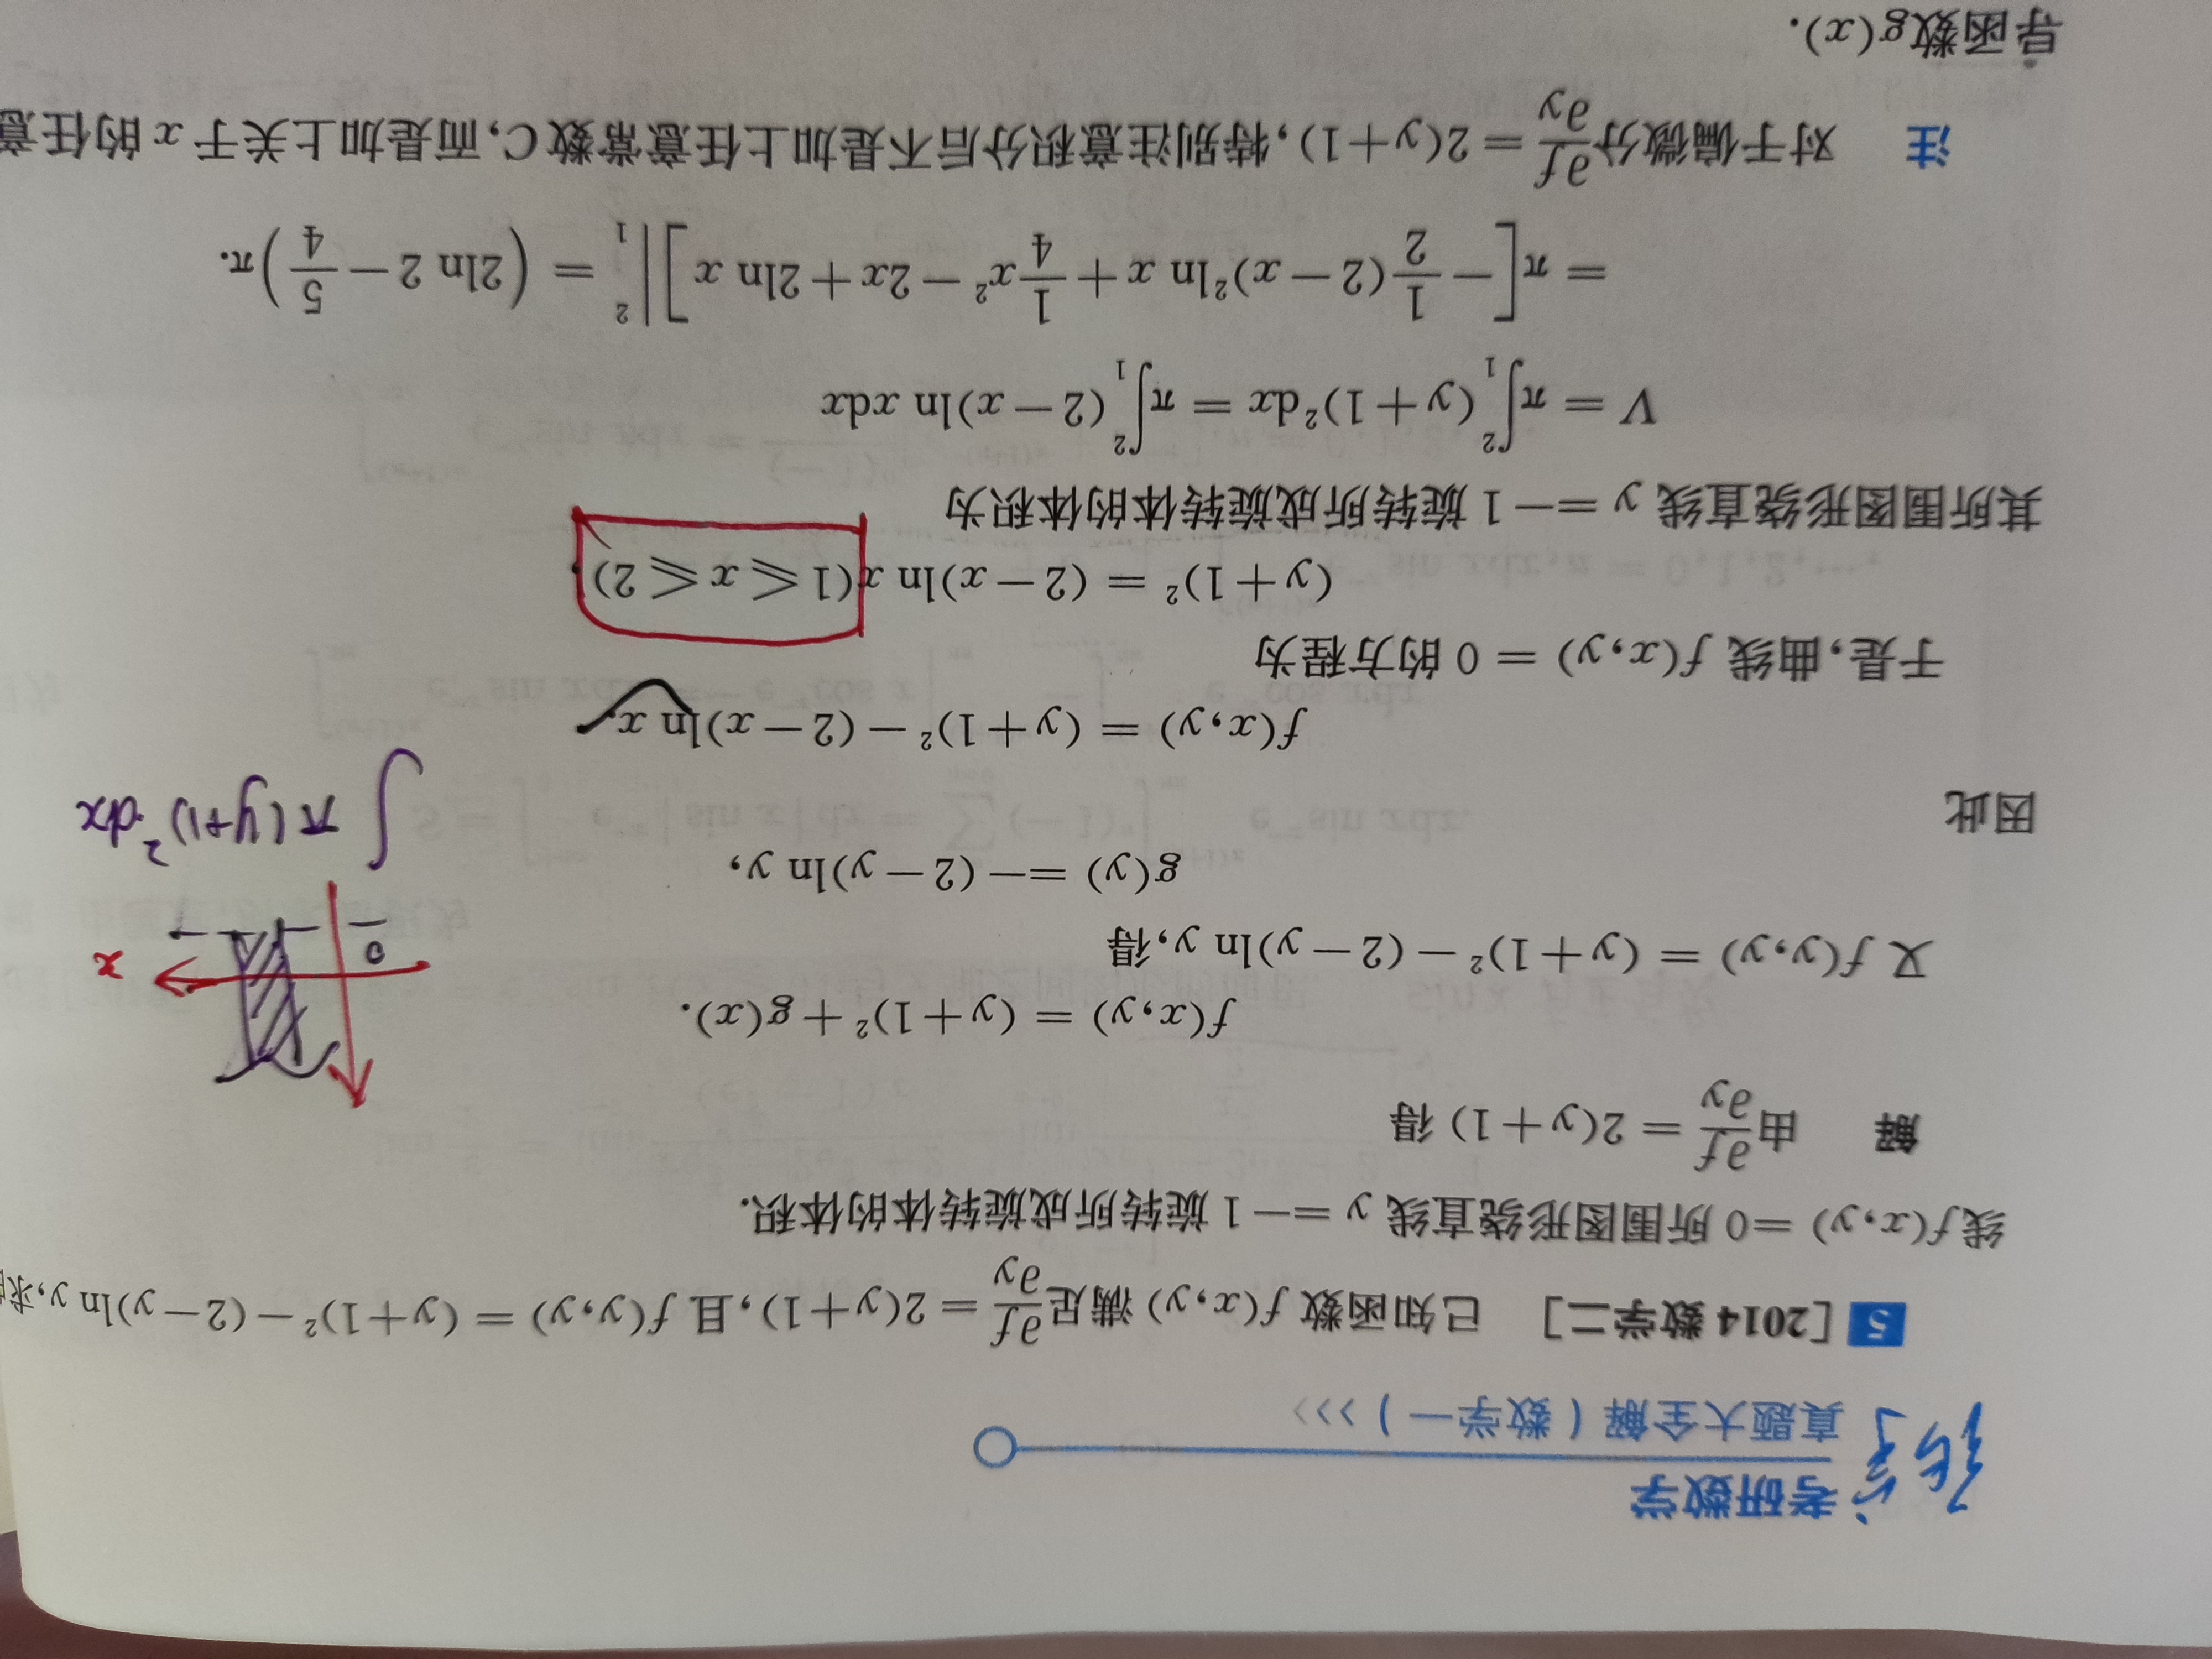 考研数学
真题大全解（数学一）>>>
5 [2014 数学二] 已知函数 f(x,y) 满足 ∂f/∂y = 2(y+1),且 f(y,y) = (y+1)² − (2−y)ln y,求
线 f(x,y) =0 所围图形绕直线 y =−1 旋转所成旋转体的体积.
解 由 ∂f/∂y = 2(y+1) 得
f(x,y) = (y+1)² + g(x).
又 f(y,y) = (y+1)² − (2−y)ln y,得
x
0
g(y) =−(2−y)ln y,
因此
∫ π(y+1)² dx
f(x,y) = (y+1)² − (2−x)ln x,
于是,曲线 f(x,y) = 0 的方程为
(y+1)² = (2−x)ln x(1 ⩽ x ⩽ 2).
其所围图形绕直线 y =−1 旋转所成旋转体的体积为
V = π∫₁²(y+1)²dx = π∫₁²(2−x)ln xdx
= π[−1/2(2−x)²ln x + 1/4x² − 2x + 2ln x]|₁² = (2ln 2 − 5/4)π.
注 对于偏微分 ∂f/∂y = 2(y+1),特别注意积分后不是加上任意常数C,而是加上关于 x 的任意
导函数g(x).